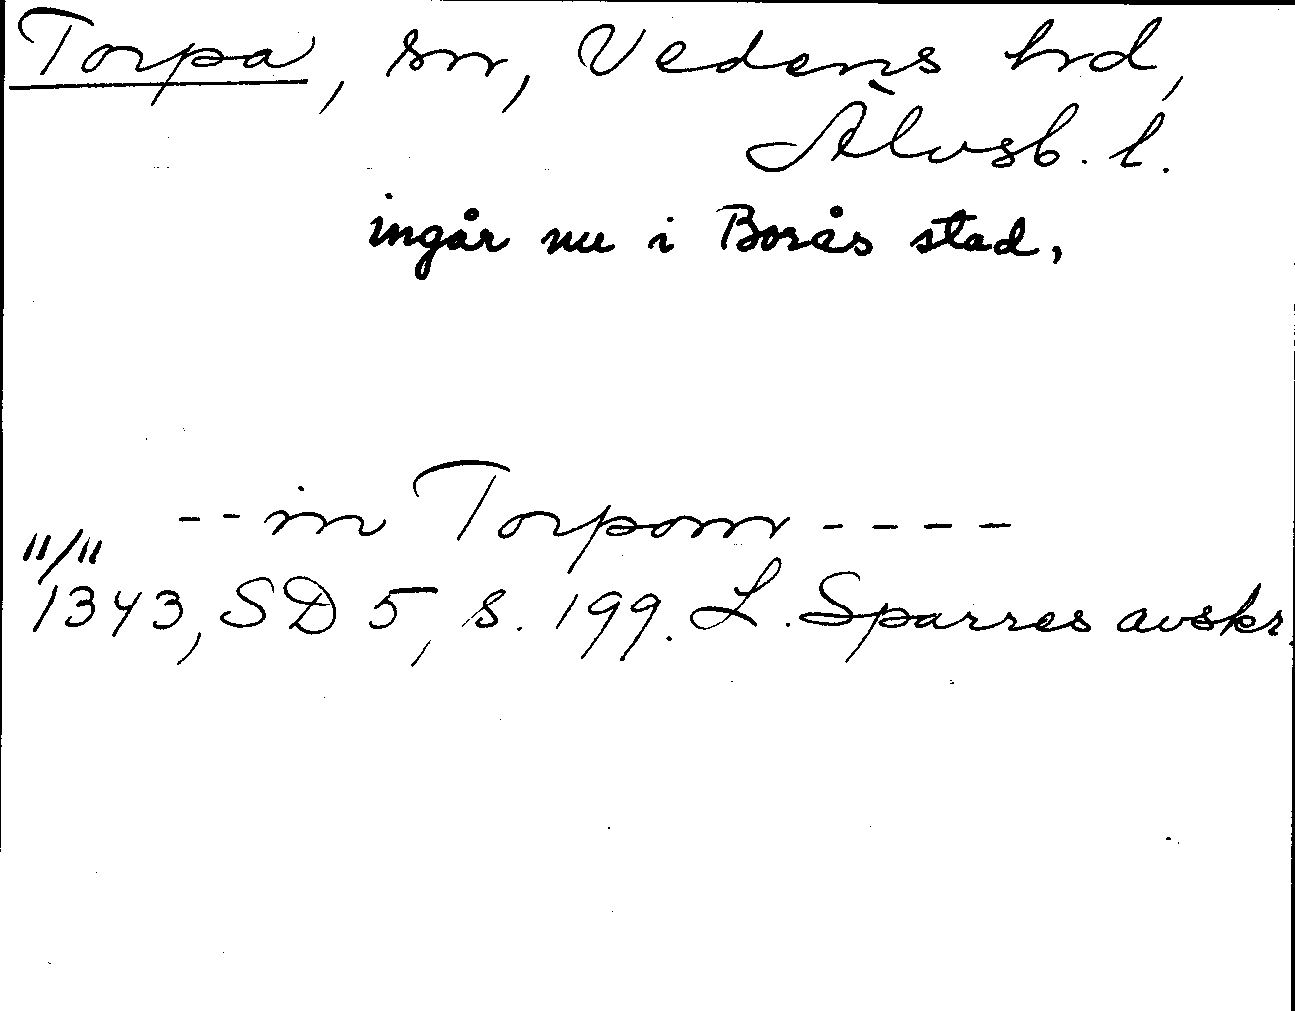 Torpa, sn, Vedens hd,
Älvsb. l.
ingår nu i Borås stad,
-- in Torpom ----
11/11
1343, SD 5, s. 199. L. Sparres avskr.